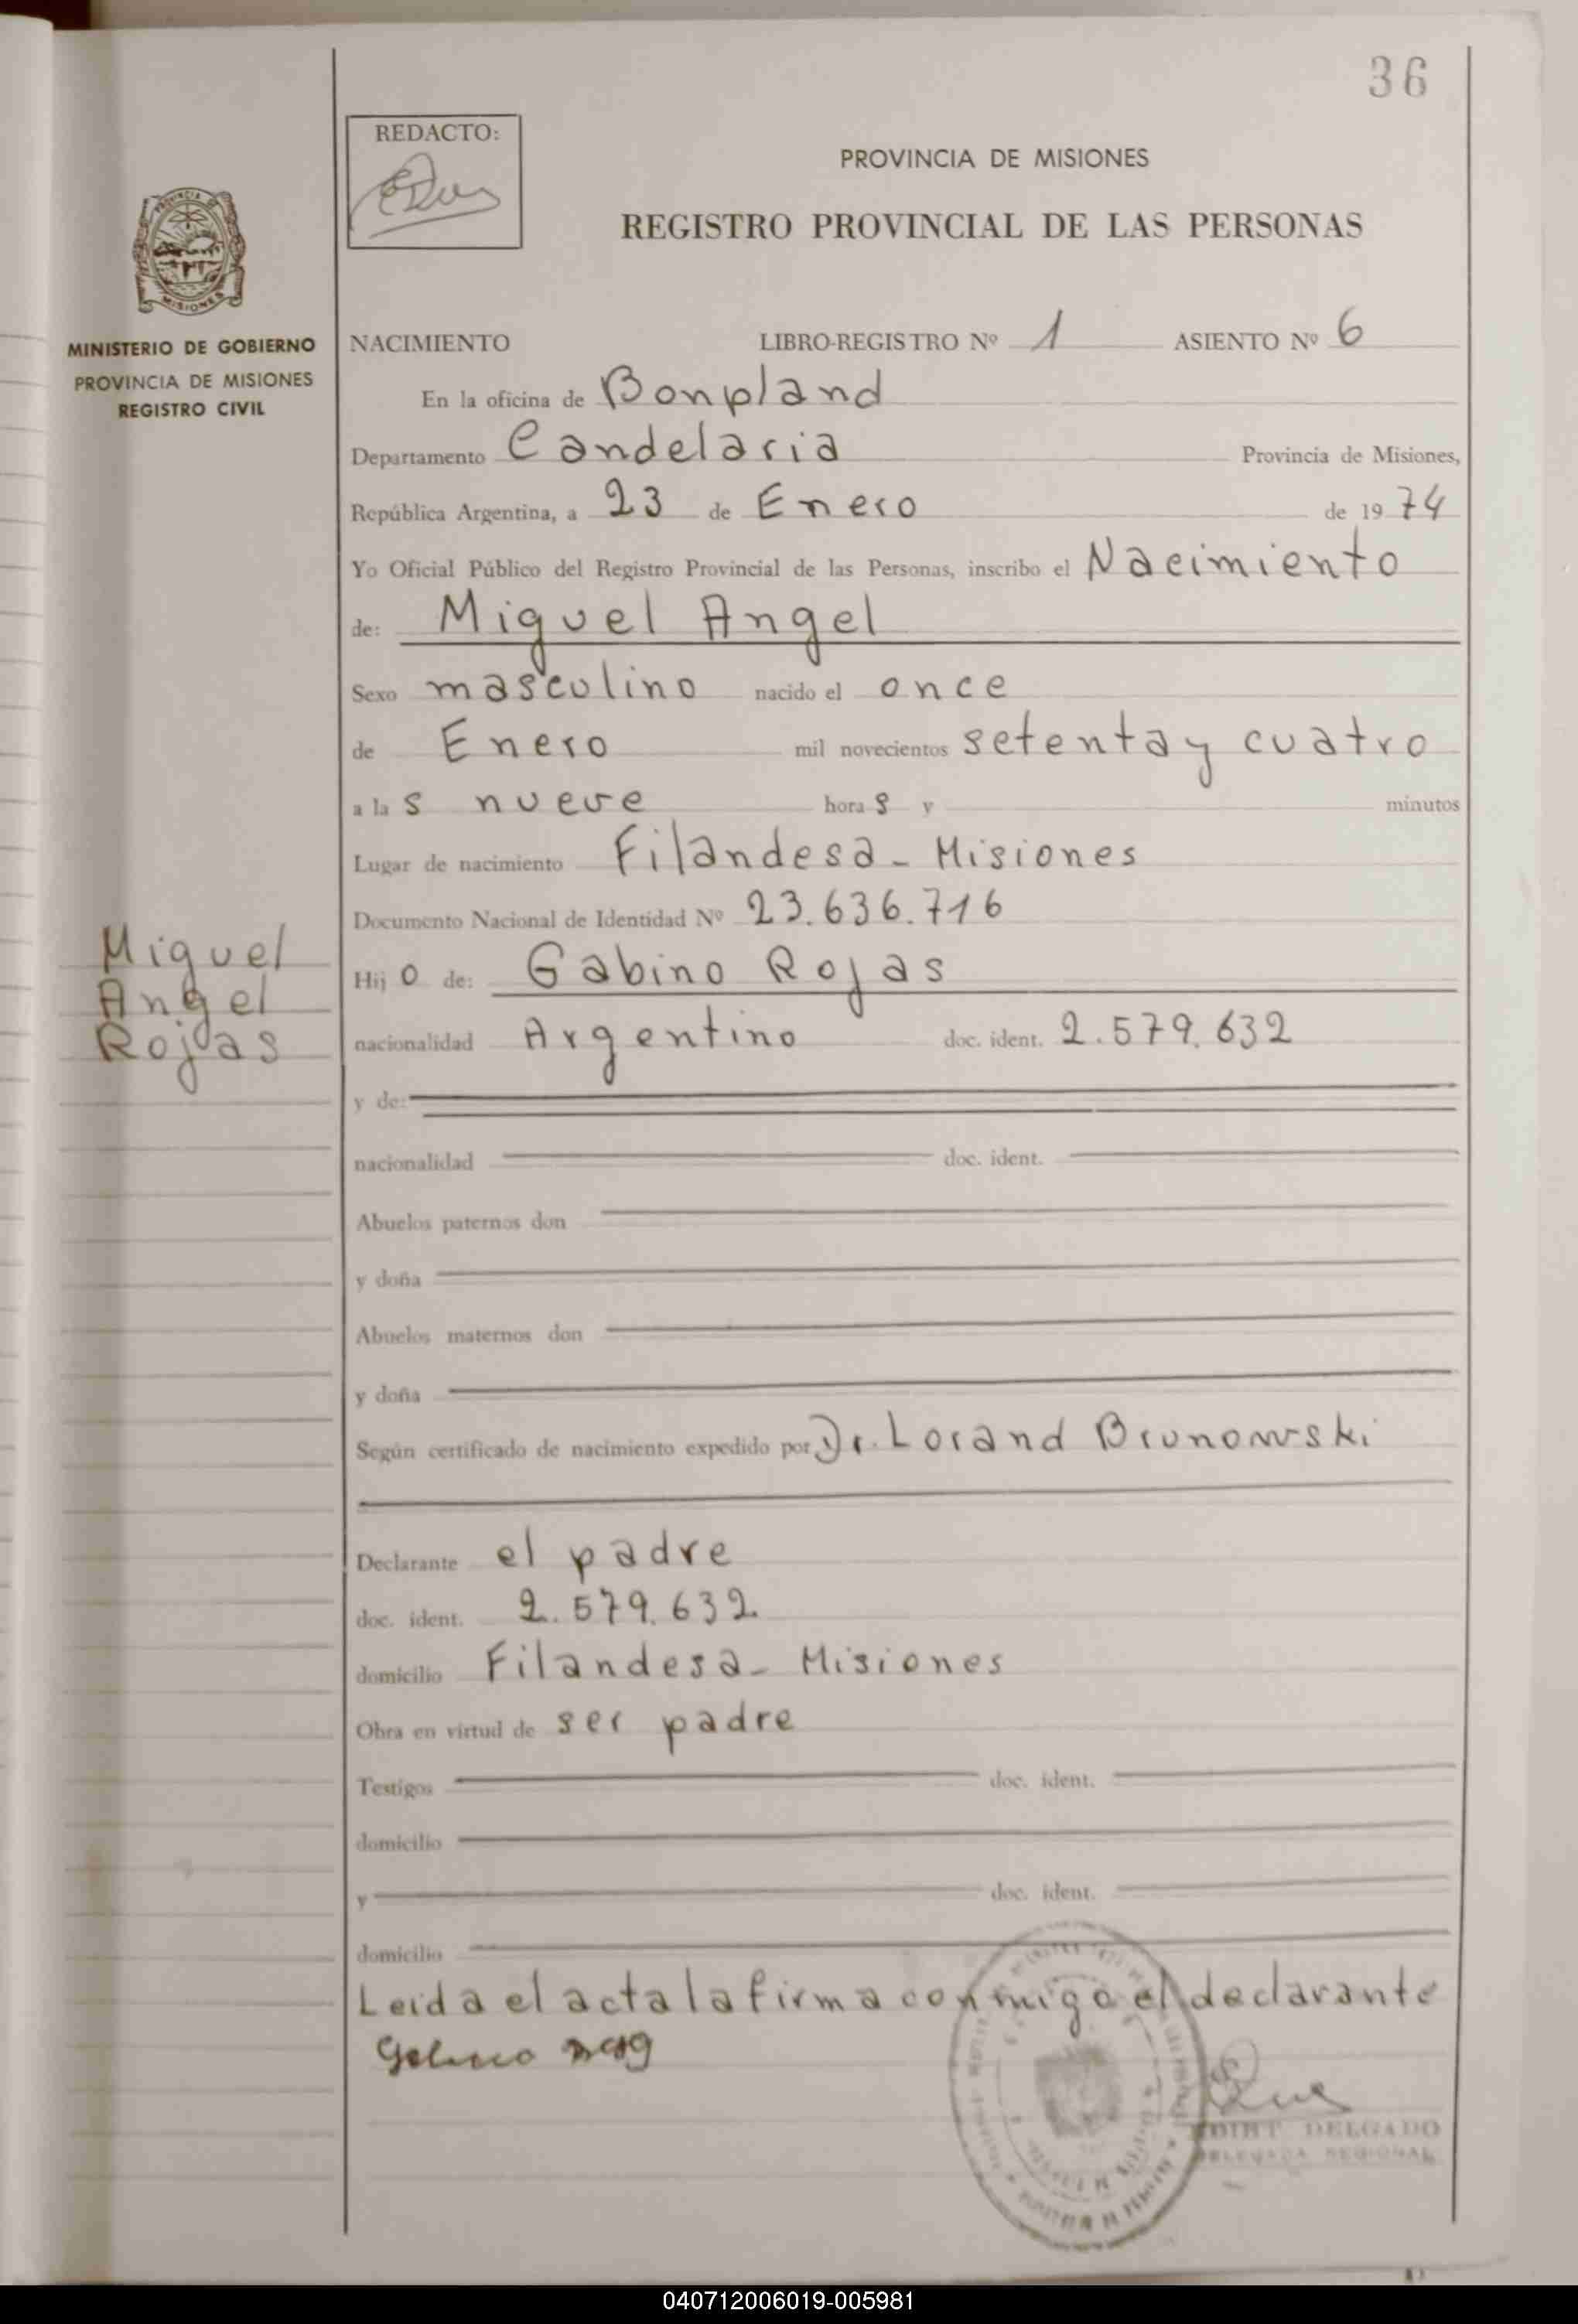 36
REDACTO:
PROVINCIA DE MISIONES
REGISTRO PROVINCIAL DE LAS PERSONAS
MISIONES
MINISTERIO DE GOBIERNO
PROVINCIA DE MISIONES
REGISTRO CIVIL
NACIMIENTO LIBRO-REGISTRO Nº 1 ASIENTO Nº 6
En la oficina de Bonpland
Departamento Candelaria Provincia de Misiones,
República Argentina, a 23 de Enero de 1974
Yo Oficial Público del Registro Provincial de las Personas, inscribo el Nacimiento
de: Miguel Angel
Sexo masculino nacido el once
de Enero mil novecientos setenta y cuatro
a las nueve horas y minutos
Lugar de nacimiento Filandesa - Misiones
Documento Nacional de Identidad Nº 23.636.716
Miguel
Angel
Rojas
Hijo de: Gabino Rojas
nacionalidad Argentino doc. ident. 2.579.632
y de:
nacionalidad doc. ident.
Abuelos paternos don
y doña
Abuelos maternos don
y doña
Según certificado de nacimiento expedido por Dr. Lorand Brunowski
Declarante el padre
doc. ident. 2.579.632
domicilio Filandesa - Misiones
Obra en virtud de ser padre
Testigos doc. ident.
domicilio
y doc. ident.
domicilio
Leida el acta la firma conmigo el declarante
DELGADO
DELEGADA REGIONAL
040712006019-005981